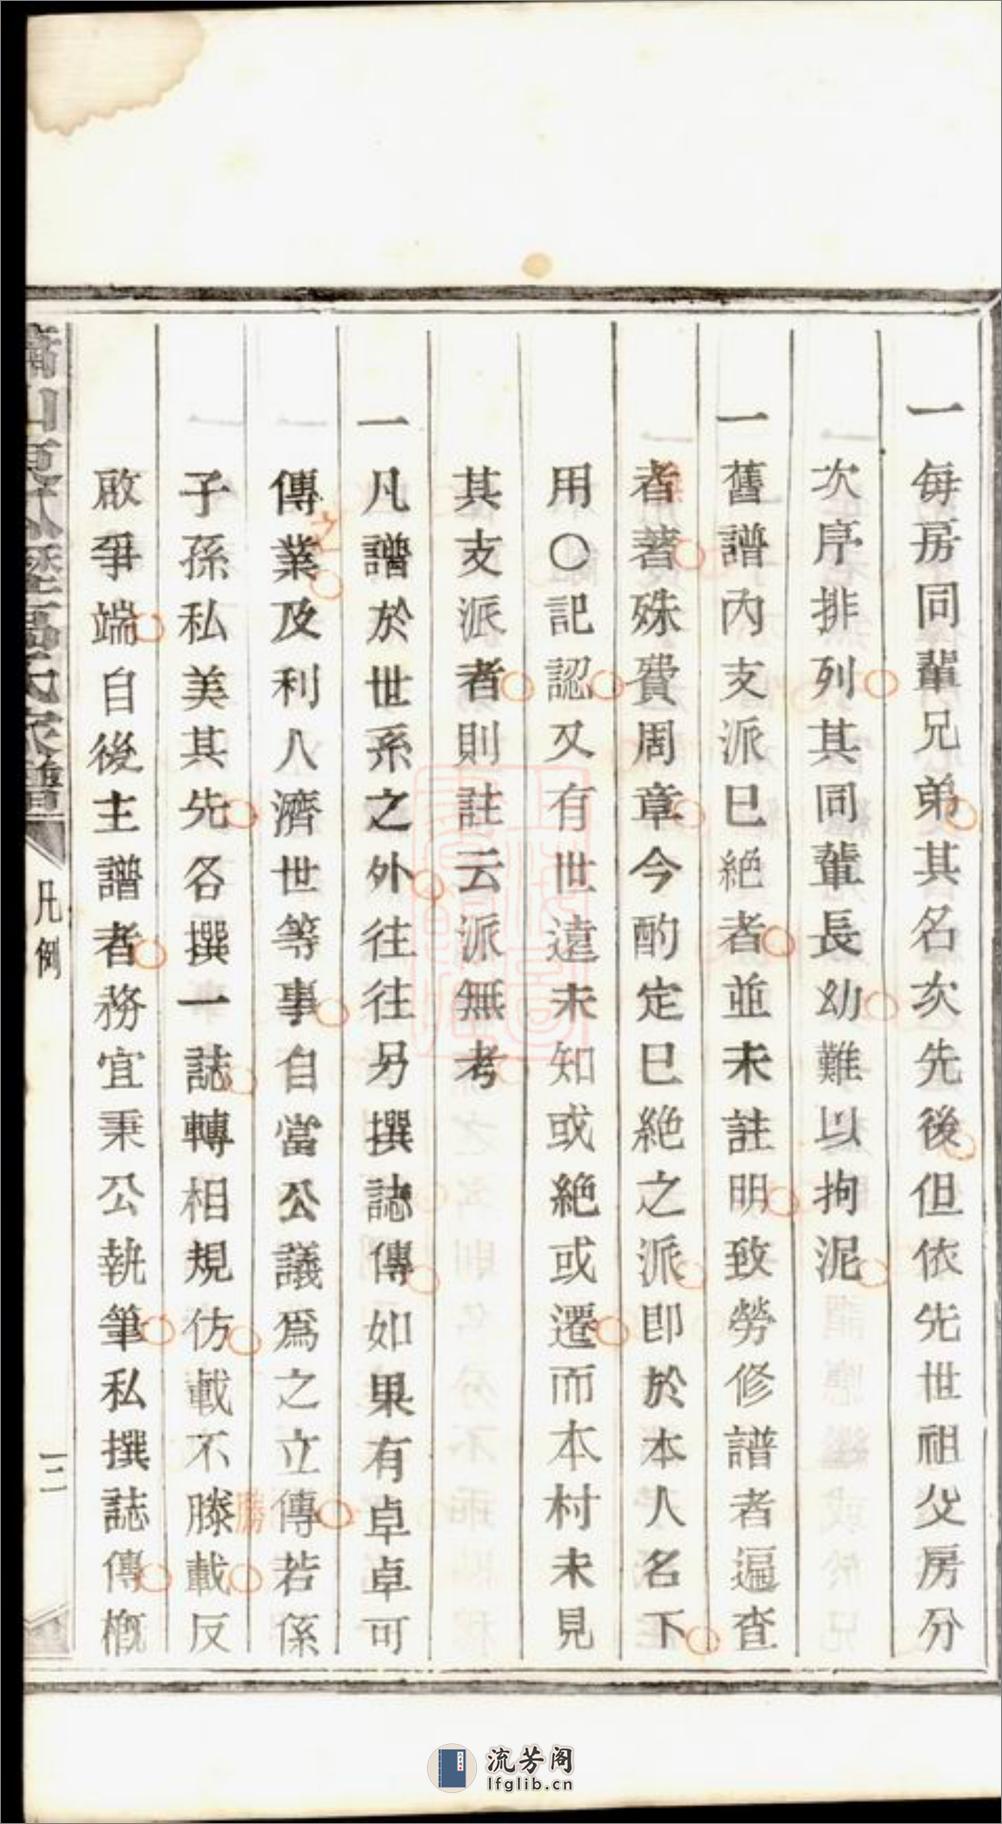 一每房同輩兄弟其名次先後但依先世祖父房分
次序排列其同輩長幼難以拘泥
一舊譜內支派已絶者並未註明致勞修譜者遍查
者著殊費周章今酌定已絶之派卽於本人名下
用〇記認又有世遠未知或絶或遷而本村未見
其支派者則註云派無考
一凡譜於世系之外往往另撰誌傳如果有卓卓可
傳業及利人濟世等事自當公議爲之立傳若係
之
子孫私美其先各撰一誌轉相規仿載不滕載反
勝
啟爭端自後主譜者務宜秉公執筆私撰誌傳槪
凡例
流芳阁
lfglib.cn